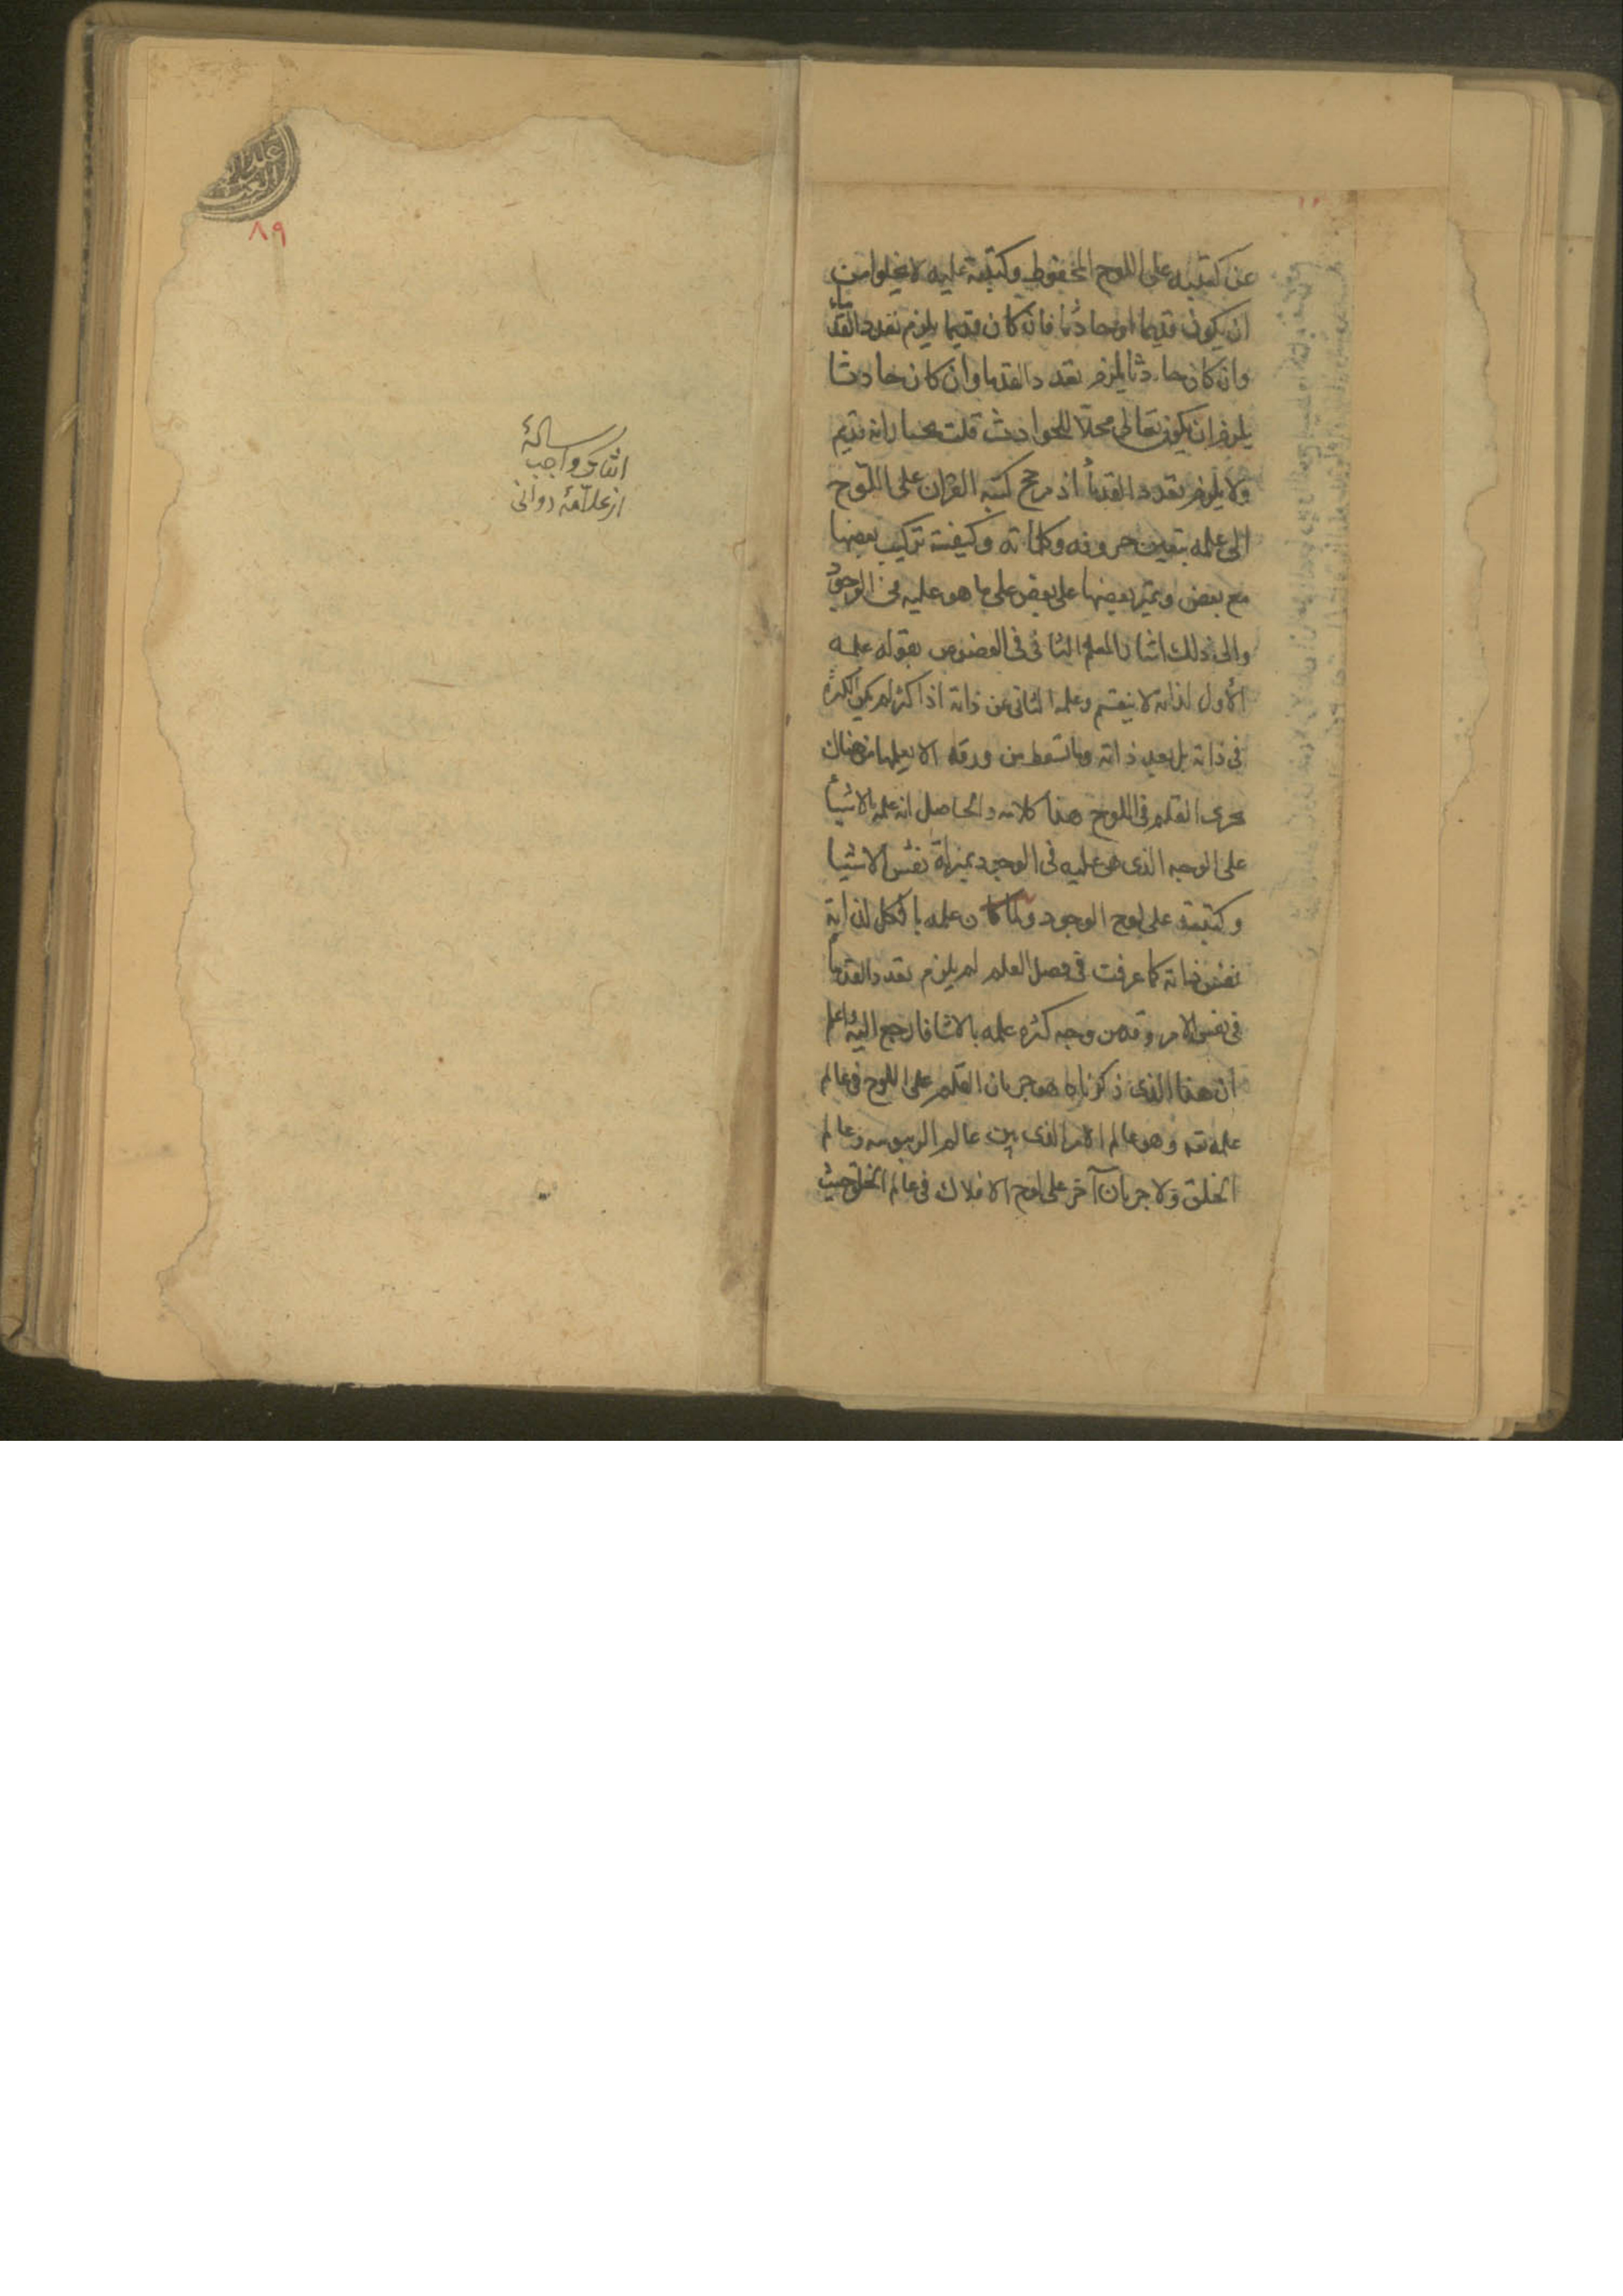 عن كتبه على اللوح المحفوظ وكتبته عليه لا يخلوا من
ان يكون قديما او حادثا فان كان قديما يلزم تعدد القدماء
وان كان حادثا يلزم تعدد القدما وان كان حادثا
يلزم ان يكون تعالى محلا للحوادث قلت نختار انه قديم
ولا يلزم تعدد القدمأ اذ مرجع كتبه القران على اللوح
الى علمه بتعين حروفه وكلماته وكيفية تركيب بعضها
مع بعض وتميز بعضها على بعض على ما هو عليه فى الوجود
والى ذلك اشار المعلم الثانى فى الفصوص بقوله علمه
الأول لذاته لا ينقسم وعلمه الثانى عن ذاته اذا كثر لم يكن الكثره
فى ذاته بل بعد ذاته وما تسقط من ورقه الا يعلمها من هناك
يجرى القلم فى اللوح هذا كلامه والحاصل ان علمه بالاشيأ
على الوجه الذى هى عليه فى الوجود بمنزلة نقش الاشيا
وكتبته على لوح الوجود ولما كان علمه بالكل لذاته
نفس ذاته كما عرفت فى فصل العلم لم يلزم تعدد القدمأ
فى نفس الامر وقد من وجه كثره علمه بالاشا فارجع اليه واعلم
ان هذا الذى ذكرناه هو جريان القلم على اللوح فى عالم
علمه تعه وهو عالم الامر الذى بين عالم الربوبيه وعالم
الخلق ولا جريان آخر على لوح الافلاك فى عالم الخلق حيث
٨٩
رسالهٔ
اثبات واجب
از علامهٔ دوانى